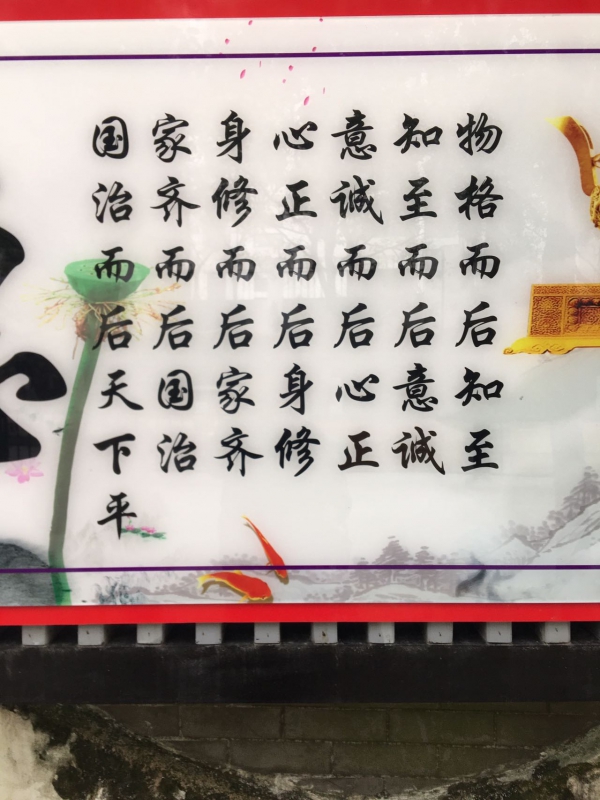 物格而后知至
知至而后意诚
意诚而后心正
心正而后身修
身修而后家齐
家齐而后国治
国治而后天下平